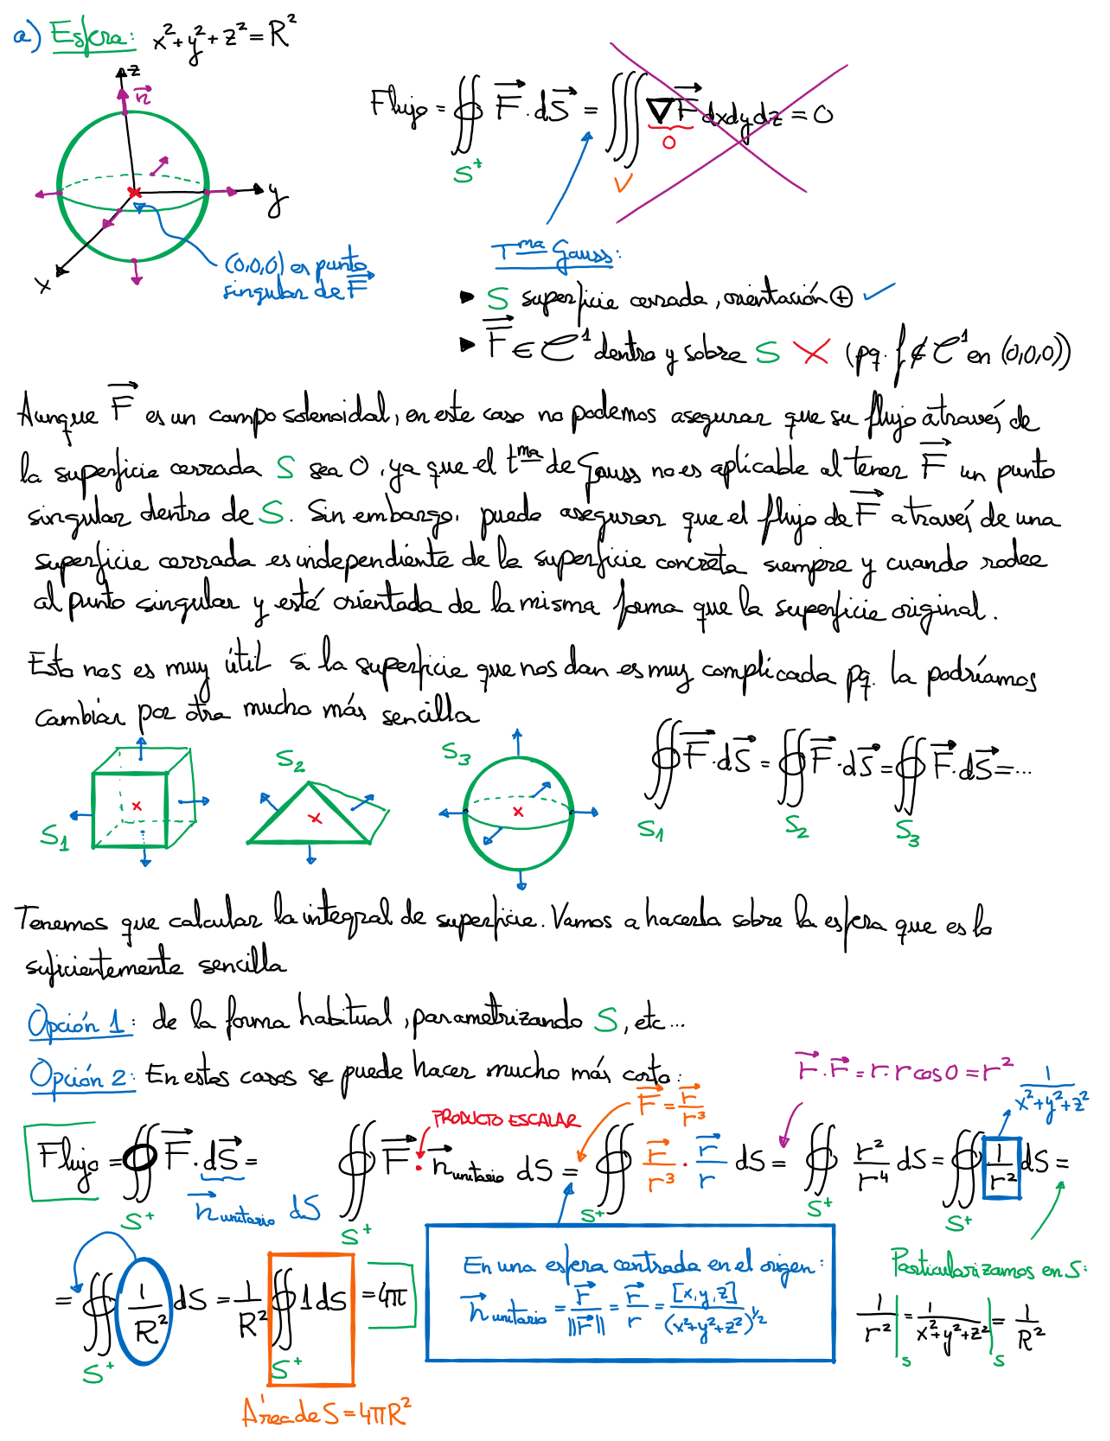 a) Esfera: x²+y²+z²=R²
z
n⃗
y
x
(0,0,0) es punto
singular de F⃗
Flujo = ∯ F⃗·dS⃗ = ∭ ∇F⃗ dxdydz = 0
S⁺
V
0
Tᵐᵃ Gauss:
▸ S superficie cerrada, orientación ⊕ ✓
▸ F⃗ ∈ C¹ dentro y sobre S ✗ (pq. f ∉ C¹ en (0,0,0))
Aunque F⃗ es un campo solenoidal, en este caso no podemos asegurar que su flujo através de
la superficie cerrada S sea 0, ya que el tᵐᵃ de Gauss no es aplicable al tener F⃗ un punto
singular dentro de S. Sin embargo, puedo asegurar que el flujo de F⃗ através de una
superficie cerrada es independiente de la superficie concreta siempre y cuando rodee
al punto singular y esté orientada de la misma forma que la superficie original.
Esto nos es muy útil si la superficie que nos dan es muy complicada pq. la podríamos
cambiar por otra mucho más sencilla
S₁
S₂
S₃
∯ F⃗·dS⃗ = ∯ F⃗·dS⃗ = ∯ F⃗·dS⃗ = ...
S₁ S₂ S₃
Tenemos que calcular la integral de superficie. Vamos a hacerla sobre la esfera que es lo
suficientemente sencilla
Opción 1: de la forma habitual, parametrizando S, etc...
Opción 2: En estos casos se puede hacer mucho más corto:
r⃗·r⃗ = r·r cos0 = r²
1/(x²+y²+z²)
PRODUCTO ESCALAR
F⃗ = r⃗/r³
Flujo = ∯ F⃗·dS⃗ = ∯ F⃗·n⃗unitario dS = ∯ r⃗/r³ · r⃗/r dS = ∯ r²/r⁴ dS = ∯ 1/r² dS =
S⁺ n⃗unitario dS S⁺ S⁺ S⁺ S⁺
= ∯ 1/R² dS = 1/R² ∯ 1dS = 4π
S⁺ S⁺
Área de S = 4πR²
En una esfera centrada en el origen:
n⃗unitario = r⃗/‖r⃗‖ = r⃗/r = [x,y,z]/(x²+y²+z²)^½
Particularizamos en S:
1/r²|s = 1/(x²+y²+z²)|s = 1/R²